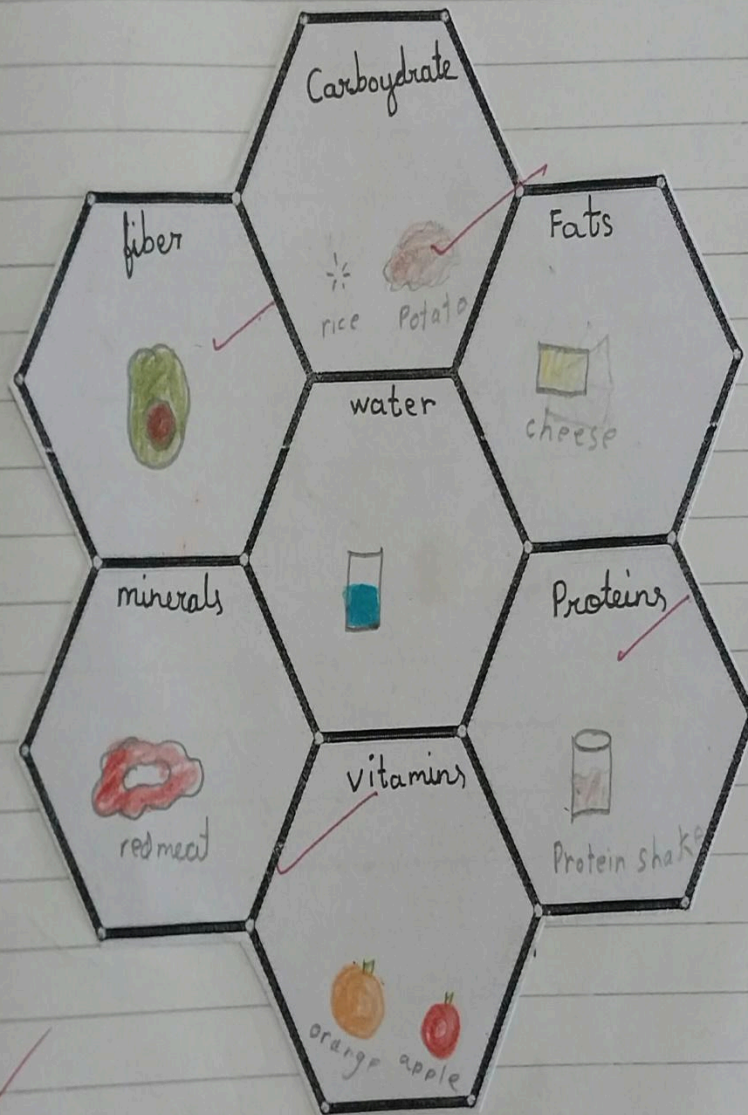 Carboydrate
rice Potato
fiber
Fats
cheese
water
minerals
redmeat
Proteins
Protein shake
vitamins
orange apple